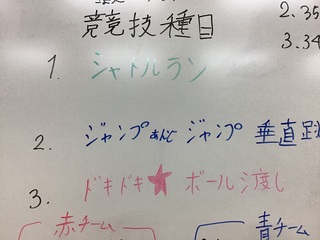 競技種目
2.35
3.34
1. シャトルラン
2. ジャンプあんどジャンプ 垂直跳
3. ドキドキ★ボール渡し
赤チーム
青チーム